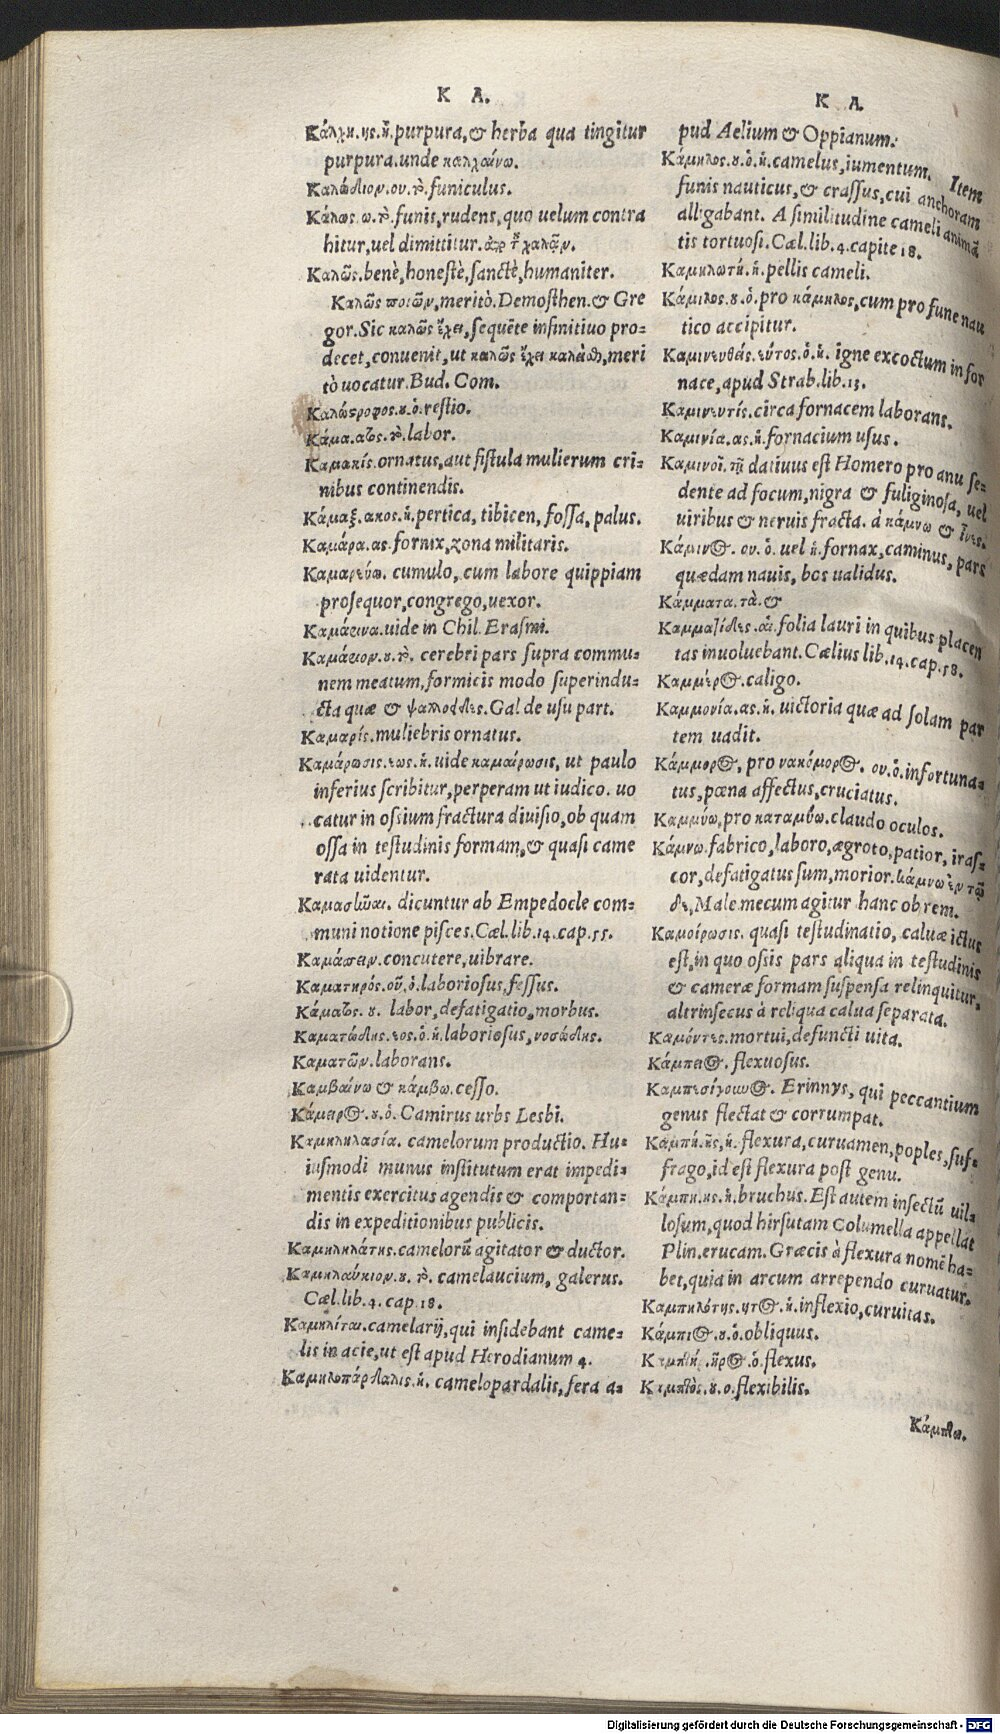 K A.
Κάλχη.ης.ἡ.purpura,& herba qua tingitur
purpura.unde καλχαίνω.
Καλώδιον.ου.τὸ.funiculus.
Κάλως.ω.τὸ.funis,rudens,quo uelum contra
hitur,uel dimittitur.ἀπὸ τοῦ χαλᾷν.
Καλῶς.benè,honestè,sanctè,humaniter.
Καλῶς ποιῶν,meritò.Demosthen.& Gre
gor.Sic καλῶς ἔχει,sequēte infinitiuo pro=
decet,conuenit,ut καλῶς ἔχει καλεῖσθαι,meri
tò uocatur.Bud. Com.
Καλώστροφος.ου.ὁ.restio.
Κάμα.ατος.τὸ.labor.
Καμακίς.ornatus,aut fistula mulierum cri=
nibus continendis.
Κάμαξ.ακος.ἡ.pertica, tibicen, fossa, palus.
Καμάρα.ας.fornix,zona militaris.
Καμαρεύω. cumulo, cum labore quippiam
prosequor,congrego,uexor.
Καμάρινα.uide in Chil. Erasmi.
Καμάριον.ου.τὸ. cerebri pars supra commu=
nem meatum,formicis modo superindu=
cta quæ & ψαλλοειδὲς.Gal de usu part.
Καμαρίς.muliebris ornatus.
Καμάρωσις.εως.ἡ.uide καμαίρωσις, ut paulo
inferius scribitur,perperam ut iudico. uo
catur in ossium fractura diuisio,ob quam
ossa in testudinis formam,& quasi came
rata uidentur.
Καμασῆναι. dicuntur ab Empedocle com=
muni notione pisces.Cæl.lib.14.cap.55.
Καμάσσειν.concutere,uibrare.
Καματηρός.οῦ.ὁ.laboriosus,fessus.
Κάματος.ου. labor,defatigatio,morbus.
Καματώδης.εος.ὁ.ἡ.laboriosus,νοσώδης.
Καματῶν.laborans.
Καμβαίνω & κάμβω.cesso.
Κάμειρος.ου.ὁ.Camirus urbs Lesbi.
Καμηληλασία. camelorum productio. Hu=
iusmodi munus institutum erat impedi=
mentis exercitus agendis & comportan=
dis in expeditionibus publicis.
Καμηληλάτης.camelorū agitator & ductor.
Καμηλαύκιον.ου. τὸ. camelaucium, galerus.
Cæl.lib.4.cap.18.
Καμηλίται.camelarij,qui insidebant came=
lis in acie,ut est apud Herodianum 4.
Καμηλοπάρδαλις.ἡ. camelopardalis, fera a=
K A.
pud Aelium & Oppianum.
Κάμηλος.ου.ὁ.ἡ.camelus,iumentum. Item
funis nauticus,& crassus,cui anchoram
alligabant. A similitudine cameli animā
tis tortuosi.Cæl.lib.4.capite 18.
Καμηλωτή.ἡ.pellis cameli.
Κάμιλος.ου.ὁ.pro κάμηλος,cum pro fune nau
tico accipitur.
Καμινευθείς.εύτος.ὁ.ἡ. igne excoctum in for
nace,apud Strab.lib.13.
Καμινευτίς.circa fornacem laborans.
Καμινία.ας.ἡ.fornacium usus.
Καμινοῖ.τῇ datiuus est Homero pro anu se=
dente ad focum,nigra & fuliginosa, uel
uiribus & neruis fracta. à κάμνω & ἶνες.
Κάμινος. ου. ὁ. uel ἡ.fornax,caminus, pars
quædam nauis, bos ualidus.
Κάμματα. τὰ. &
Καμματίδες.αἱ.folia lauri in quibus placen
tas inuoluebant.Cælius lib.14.cap.58.
Καμμερος.caligo.
Καμμονία.ας.ἡ. uictoria quæ ad solam par
tem uadit.
Κάμμορος, pro νακόμορος. ου.ὁ.infortuna=
tus,pœna affectus,cruciatus.
Καμμύω,pro καταμύω.claudo oculos.
Κάμνω.fabrico,laboro,ægroto,patior, iras=
cor,defatigatus sum,morior.κάμνω ἐν τῷ
δε, Male mecum agitur hanc ob rem.
Καμοίρωσις. quasi testudinatio, caluæ ictus
est,in quo ossis pars aliqua in testudinis
& cameræ formam suspensa relinquitur,
altrinsecus à reliqua calua separata.
Καμόντες.mortui,defuncti uita.
Κάμπειος. flexuosus.
Καμπεσίγουνος. Erinnys, qui peccantium
genus flectat & corrumpat.
Καμπή.ῆς,ἡ. flexura,curuamen,poples,suf=
frago,id est flexura post genu.
Κάμπη.ης.ἡ.bruchus.Est autem insectū uil=
losum,quod hirsutam Columella appellat
Plin.erucam. Græcis à flexura nomē ha=
bet,quia in arcum arrependo curuatur.
Καμπηλότης.ητος.ἡ.inflexio,curuitas.
Κάμπιος.ου.ὁ.obliquus.
Καμπτήρ.ῆρος.ὁ.flexus.
Καμπτὸς.ου.ο.flexibilis.
Κάμπτω.
Digitalisierung gefördert durch die Deutsche Forschungsgemeinschaft - DFG